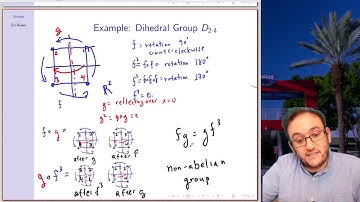 Groups
Zvi Rosen
Example: Dihedral Group D₂.₄
g
f = rotation 90°
counterclockwise
f² = f∘f = rotation 180°
f³ = f∘f∘f = rotation 270°
f⁴ = e.
3
4
R²
f
g = reflecting over x=0
g² = g∘g = e
f∘g =
after g
after f
fg = gf³
g∘f³ =
after f³
after g
non-abelian
group